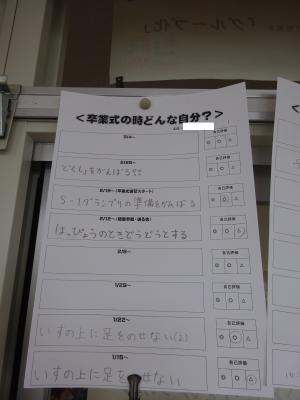 「グループ化」
<卒業式の時どんな自分？>
自己評価
◎ ○ △
2/25~
どくしょをがんばる!!
自己評価
◎ ○ △
2/18~(卒業式練習スタート)
S-1グランプリの準備をがんばる
自己評価
◎ ○ △
2/12~
はっぴょうのときどうどうとする
自己評価
◎ ○ △
2/5~
自己評価
◎ ○ △
1/29~
自己評価
◎ ○ △
1/22~
いすの上に足をのせない(2)
自己評価
◎ ○ △
1/15~
いすの上に足をのせない
自己評価
◎ ○ △